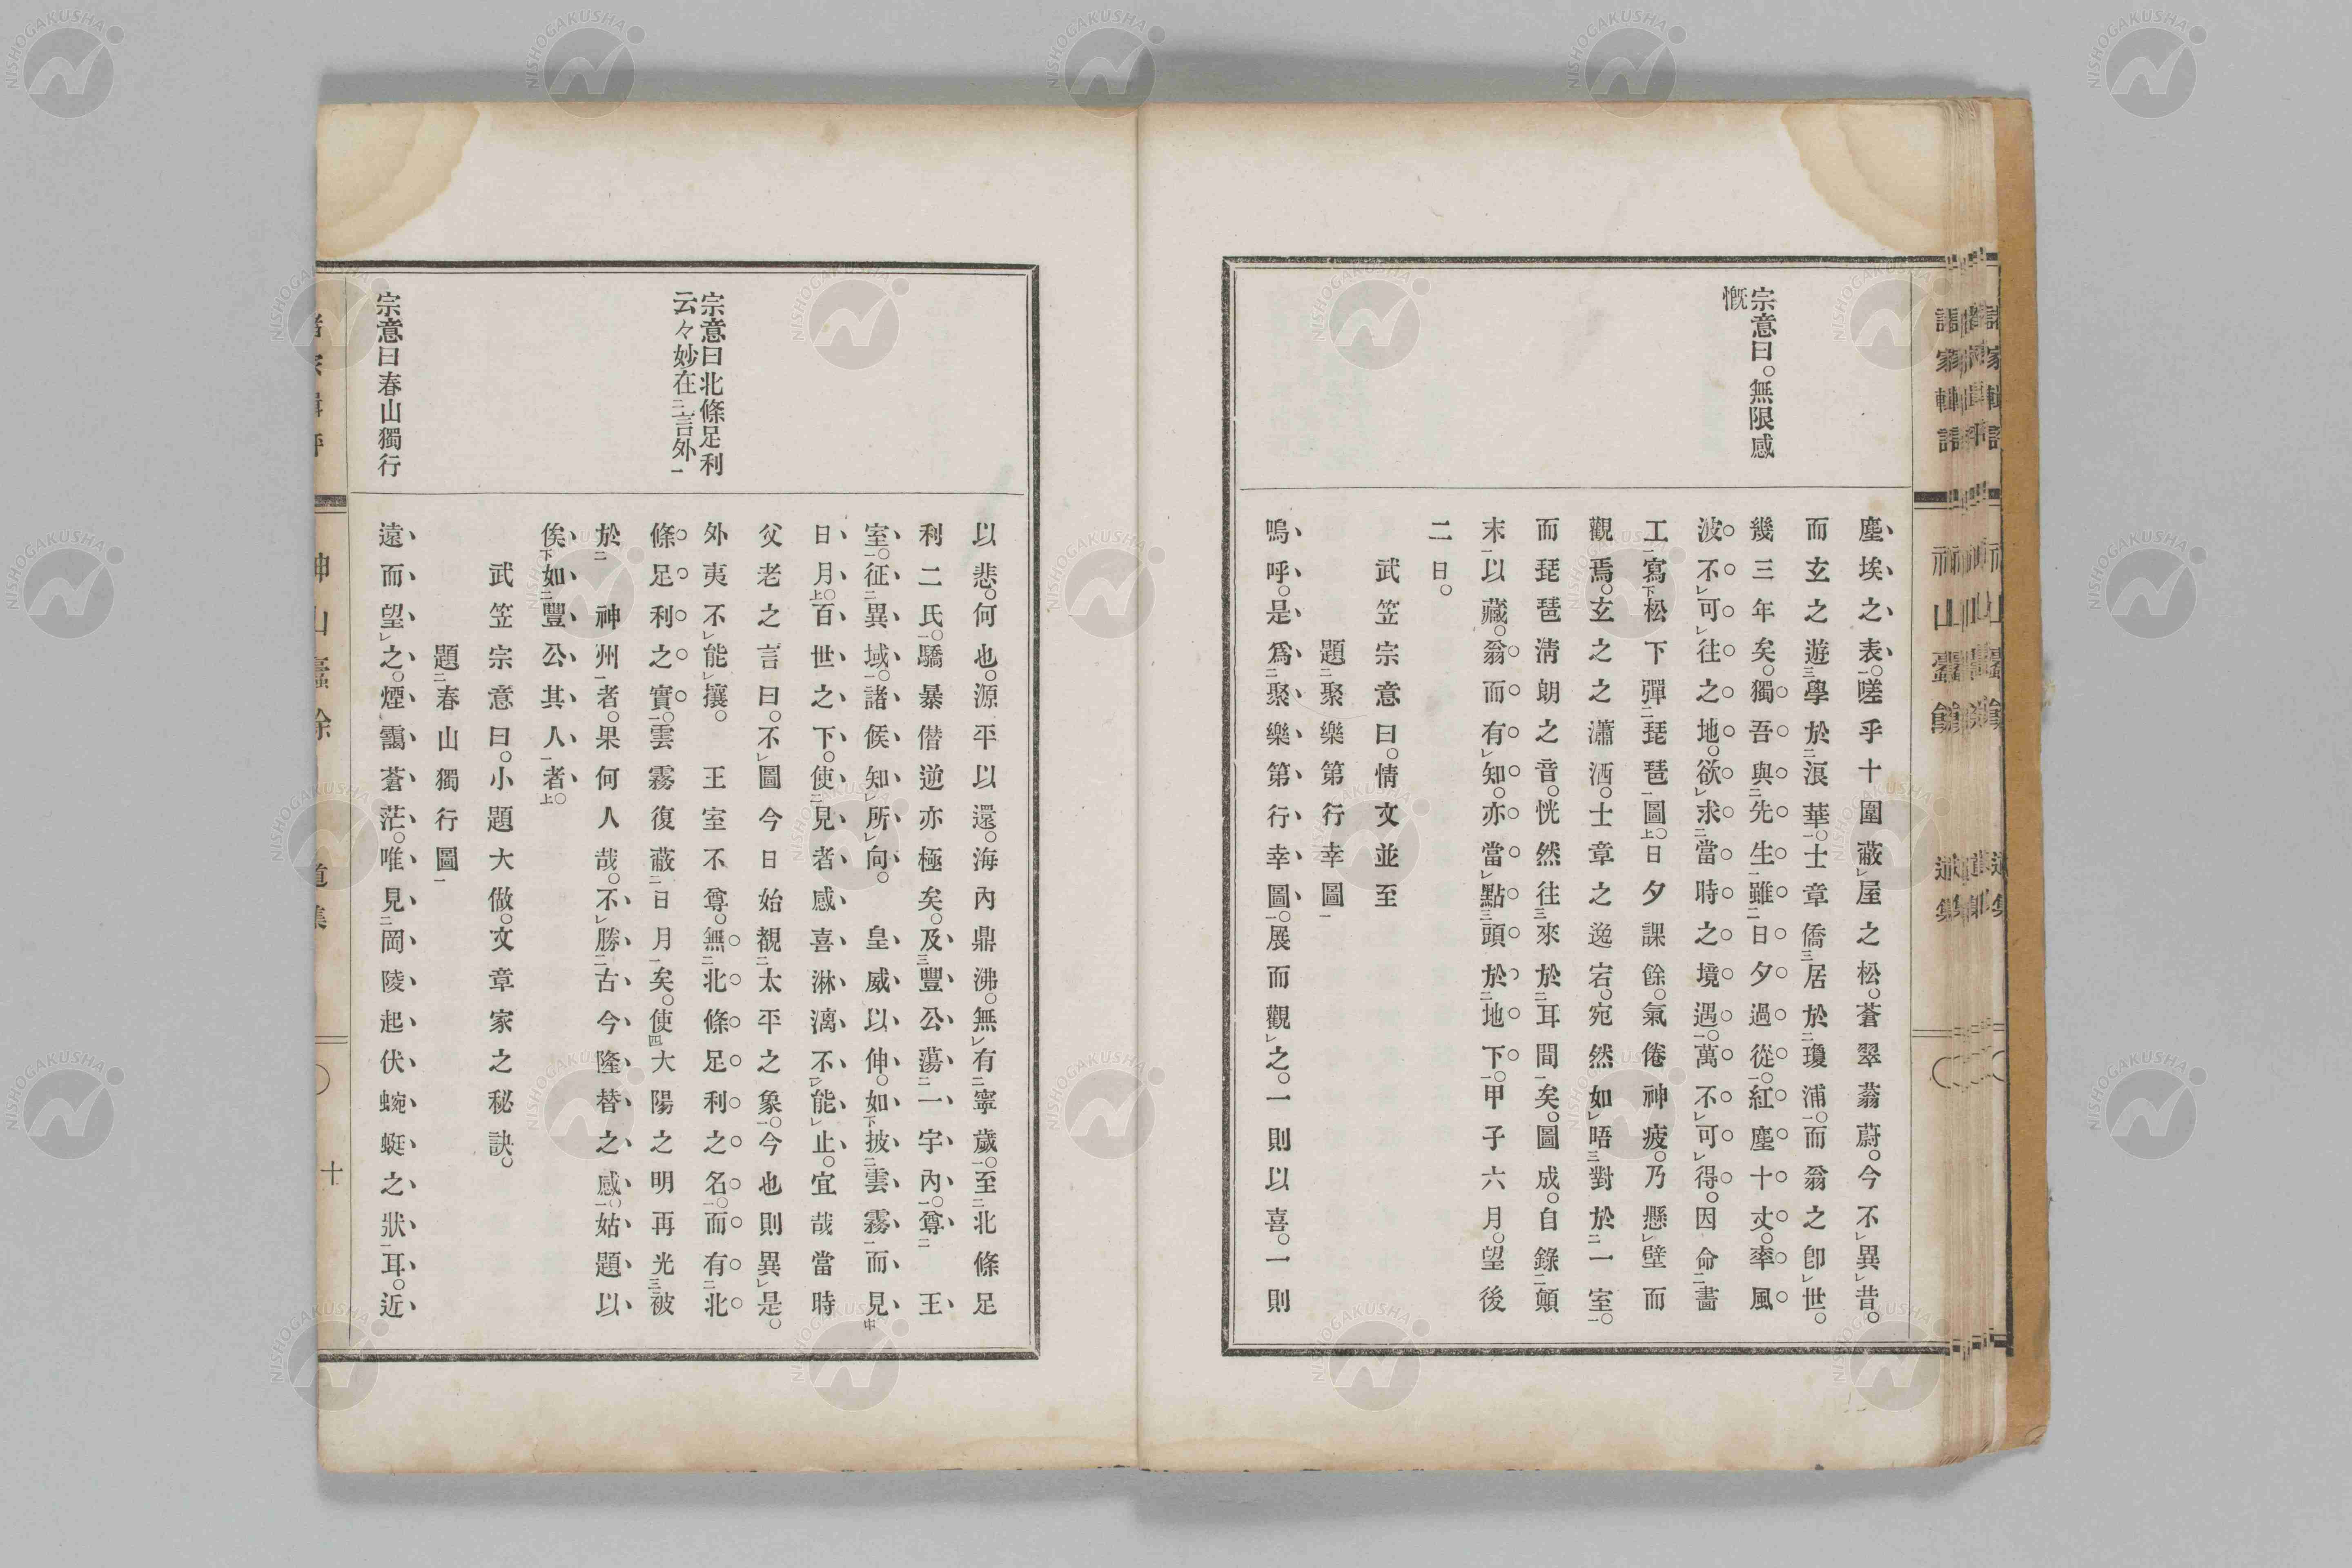 宗意曰。無限感
慨
塵埃之表。嗟乎十圍蔽屋之松。蒼翠蓊蔚。今不異昔。
而玄之遊學於浪華。士章僑居於瓊浦。而翁之卽世。
幾三年矣。獨吾與先生雖日夕過從。紅塵十丈。率風
波不可往之地。欲求當時之境遇。萬不可得。因命畵
工寫松下彈琵琶圖。日夕課餘。氣倦神疲。乃懸壁而
觀焉。玄之之瀟洒。士章之逸宕。宛然如晤對於一室。
而琵琶淸朗之音。恍然往來於耳間矣。圖成。自錄顛
末以藏。翁而有知。亦當點頭於地下。甲子六月。望後
二日。
武笠宗意曰。情文並至
題聚樂第行幸圖
嗚呼。是爲聚樂第行幸圖。展而觀之。一則以喜。一則
宗意曰北條足利
云々妙在言外
宗意曰春山獨行
以悲。何也。源平以還。海內鼎沸。無有寧歲。至北條足
利二氏。驕暴僭逆亦極矣。及豐公蕩一宇內。尊王
室。征異域。諸候知所向。皇威以伸。如披雲霧而見
日月。百世之下。使見者感喜淋漓不能止。宜哉當時
父老之言曰。不圖今日始観太平之象。今也則異是。
外夷不能攘。王室不尊。無北條足利之名。而有北
條足利之實。雲霧復蔽日月矣。使大陽之明再光被
於神州者。果何人哉。不勝古今隆替之感。姑題以
俟如豐公其人者。
武笠宗意曰。小題大做。文章家之秘訣。
題春山獨行圖
遠而望之。煙靄蒼茫。唯見岡陵起伏蜿蜒之狀耳。近
神山臺餘
道集
十
NISHOGAKUSHA